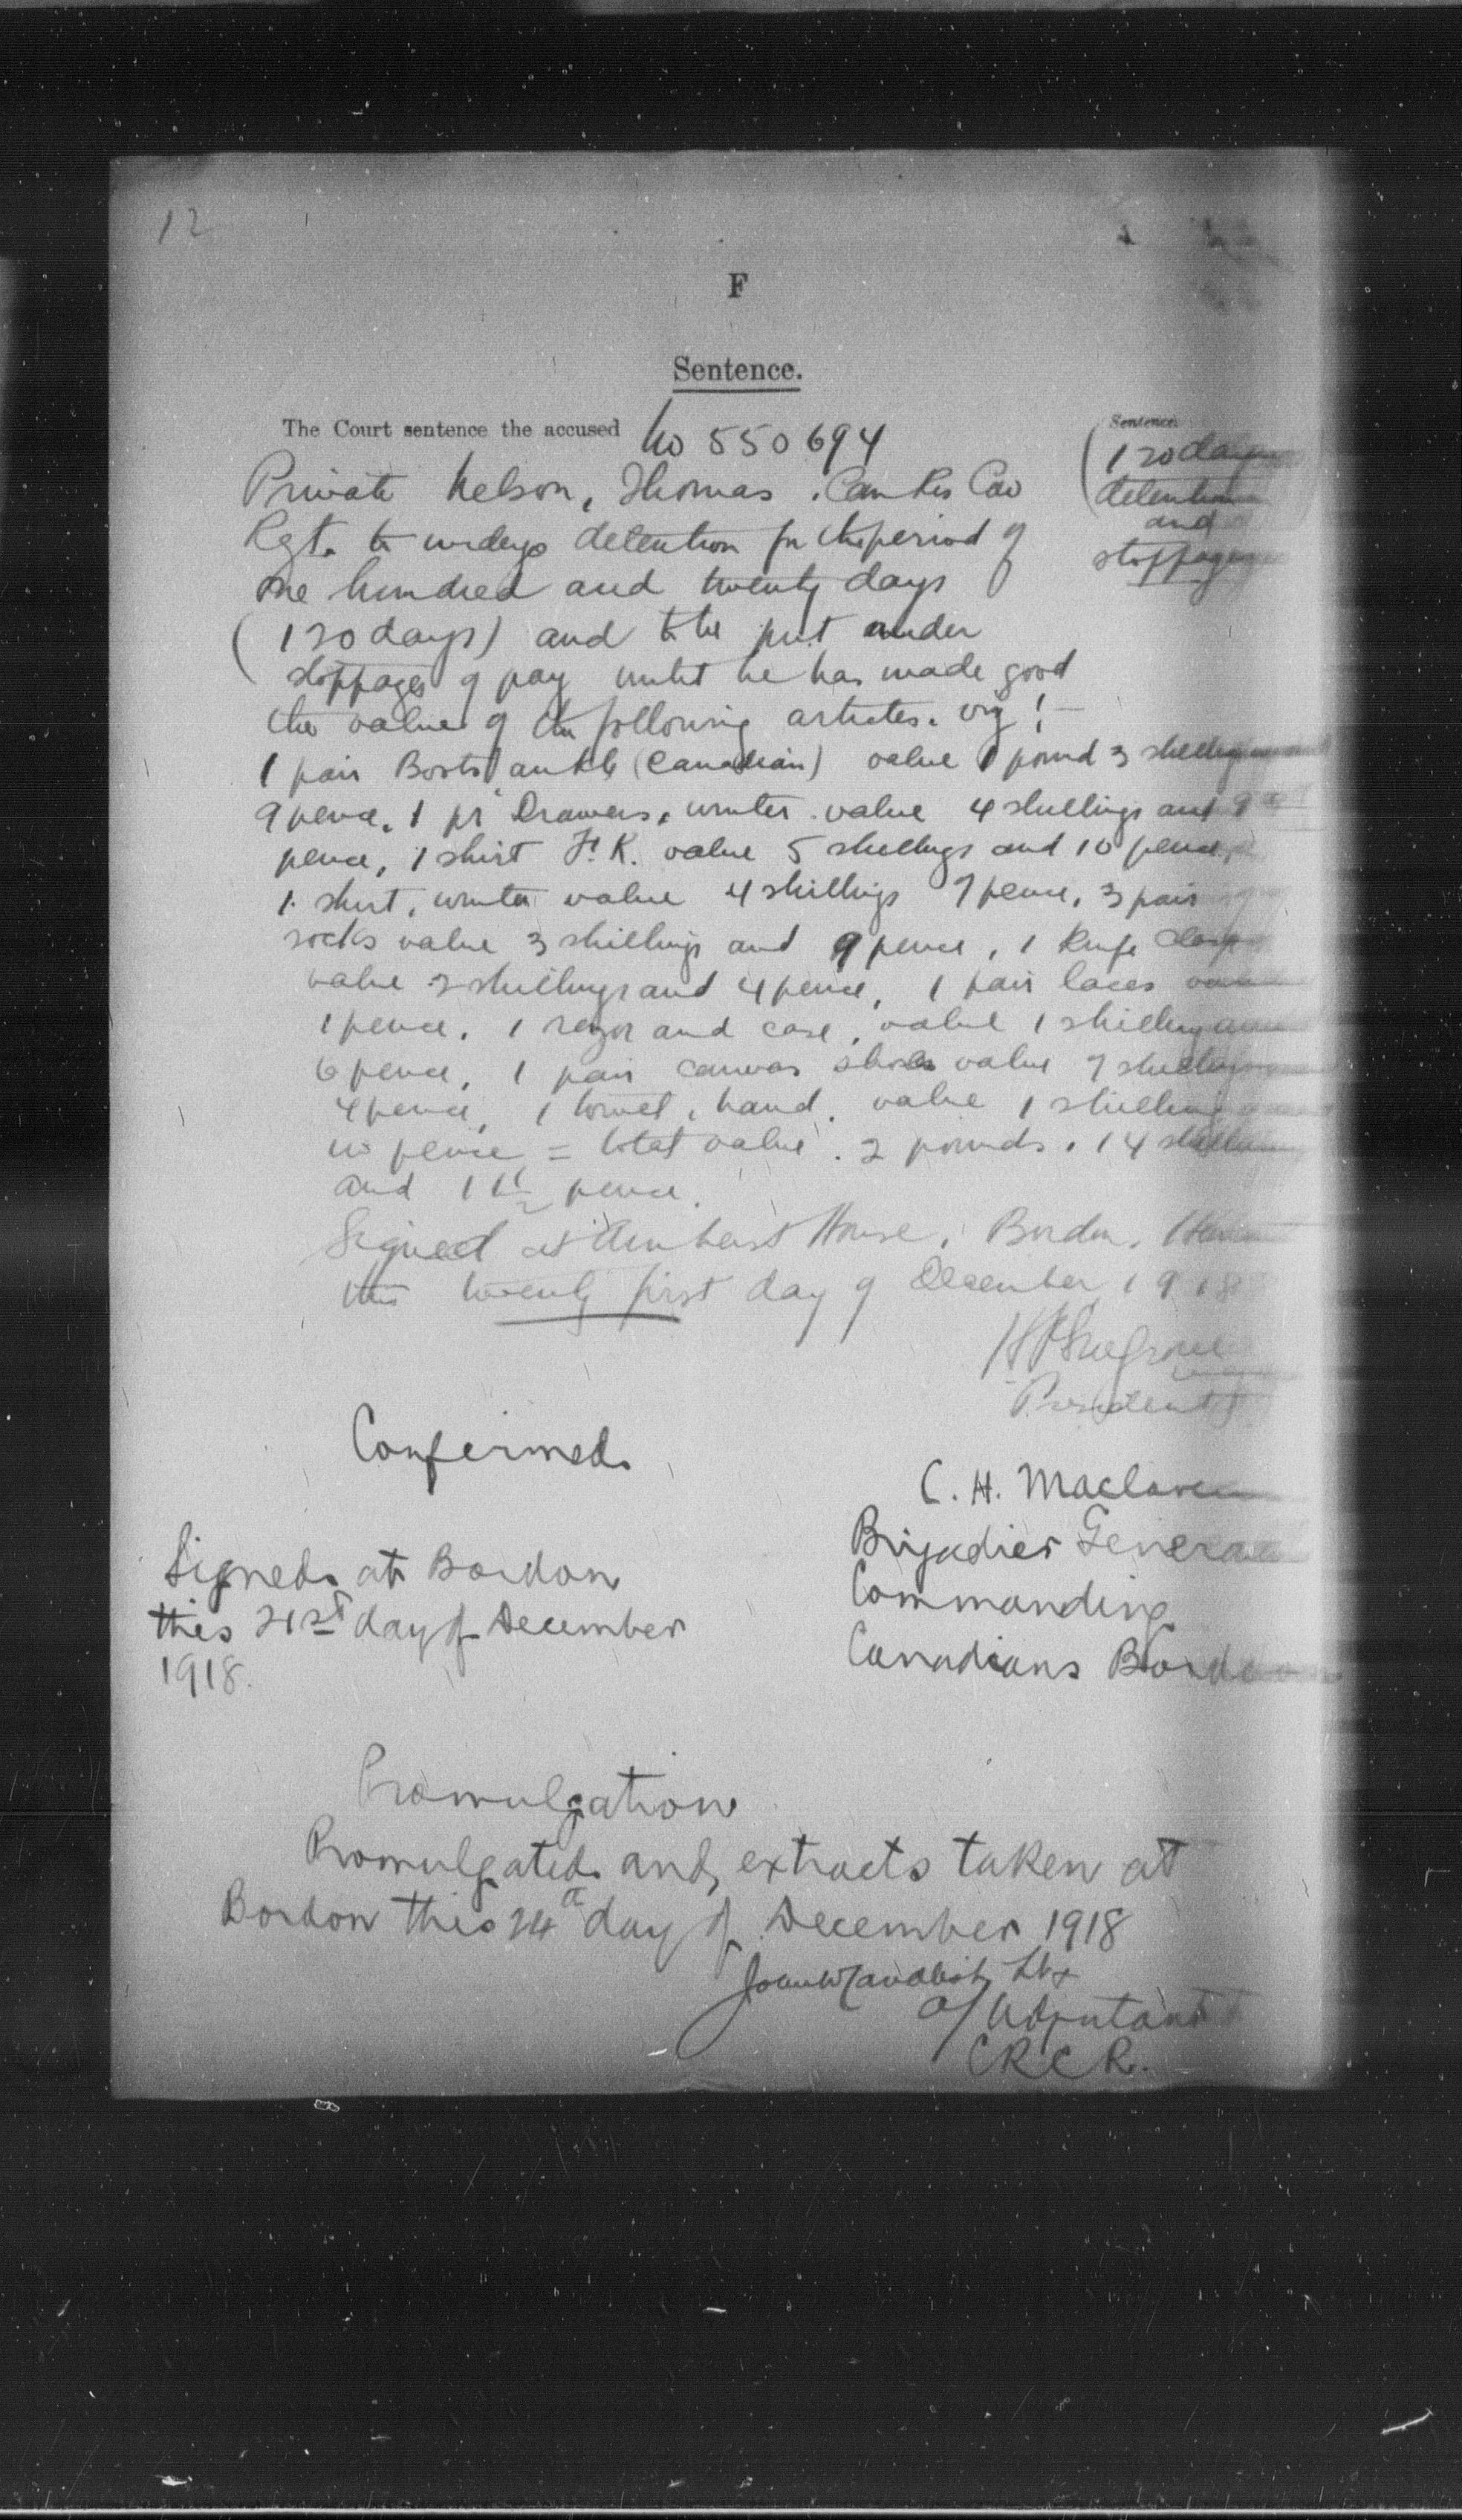 12
F
Sentence.
The Court sentence the accused No 550694
Private Nelson, Thomas. Can Res Cav
Regt. to undergo detention for the period of
one hundred and twenty days
(120 days) and to be put under
stoppages of pay until he has made good
the value of the following articles. viz! -
1 pair Boots ankle (Canadian) value 1 pound 3 shillings and
9 pence, 1 pr Drawers, winter. value 4 shillings and 9
pence, 1 shirt F. K. value 5 shillings and 10 pence,
1 shirt, winter value 4 shillings 7 pence, 3 pair
socks value 3 shillings and 9 pence, 1 Knife clasp
value 2 shillings and 4 pence, 1 pair laces value
1 pence, 1 razor and case, value 1 shilling and
6 pence, 1 pair canvas shoes value 7 shillings
4 pence, 1 towel, hand. value 1 shilling
10 pence = total value. 2 pounds. 14 shillings
and pence.
Signed at Amherst House, Bordon,
this twenty first day of December 1918
President
Sentence
(120 days
detention
and
stoppages
Confirmed.
C. H. Maclaren
Brigadier General
Commanding
Canadians Bordon
Signed at Bordon
this 21st day of December
1918.
Promulgation
Promulgated and extracts taken at
Bordon this 24th day of December 1918
Lt
a/Adjutant
CRCR.